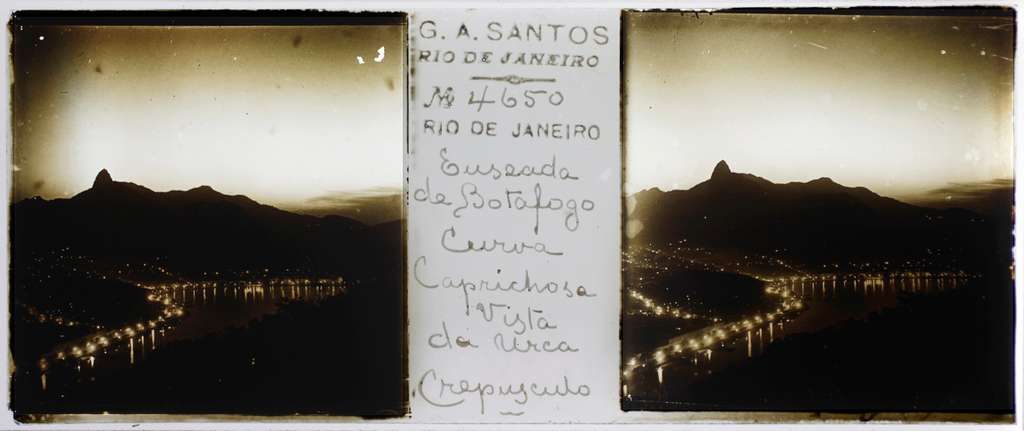 G. A. SANTOS
RIO DE JANEIRO
№ 4650
RIO DE JANEIRO
Enseada
de Botafogo
Curva
Caprichosa
Vista
da Urca
Crepusculo